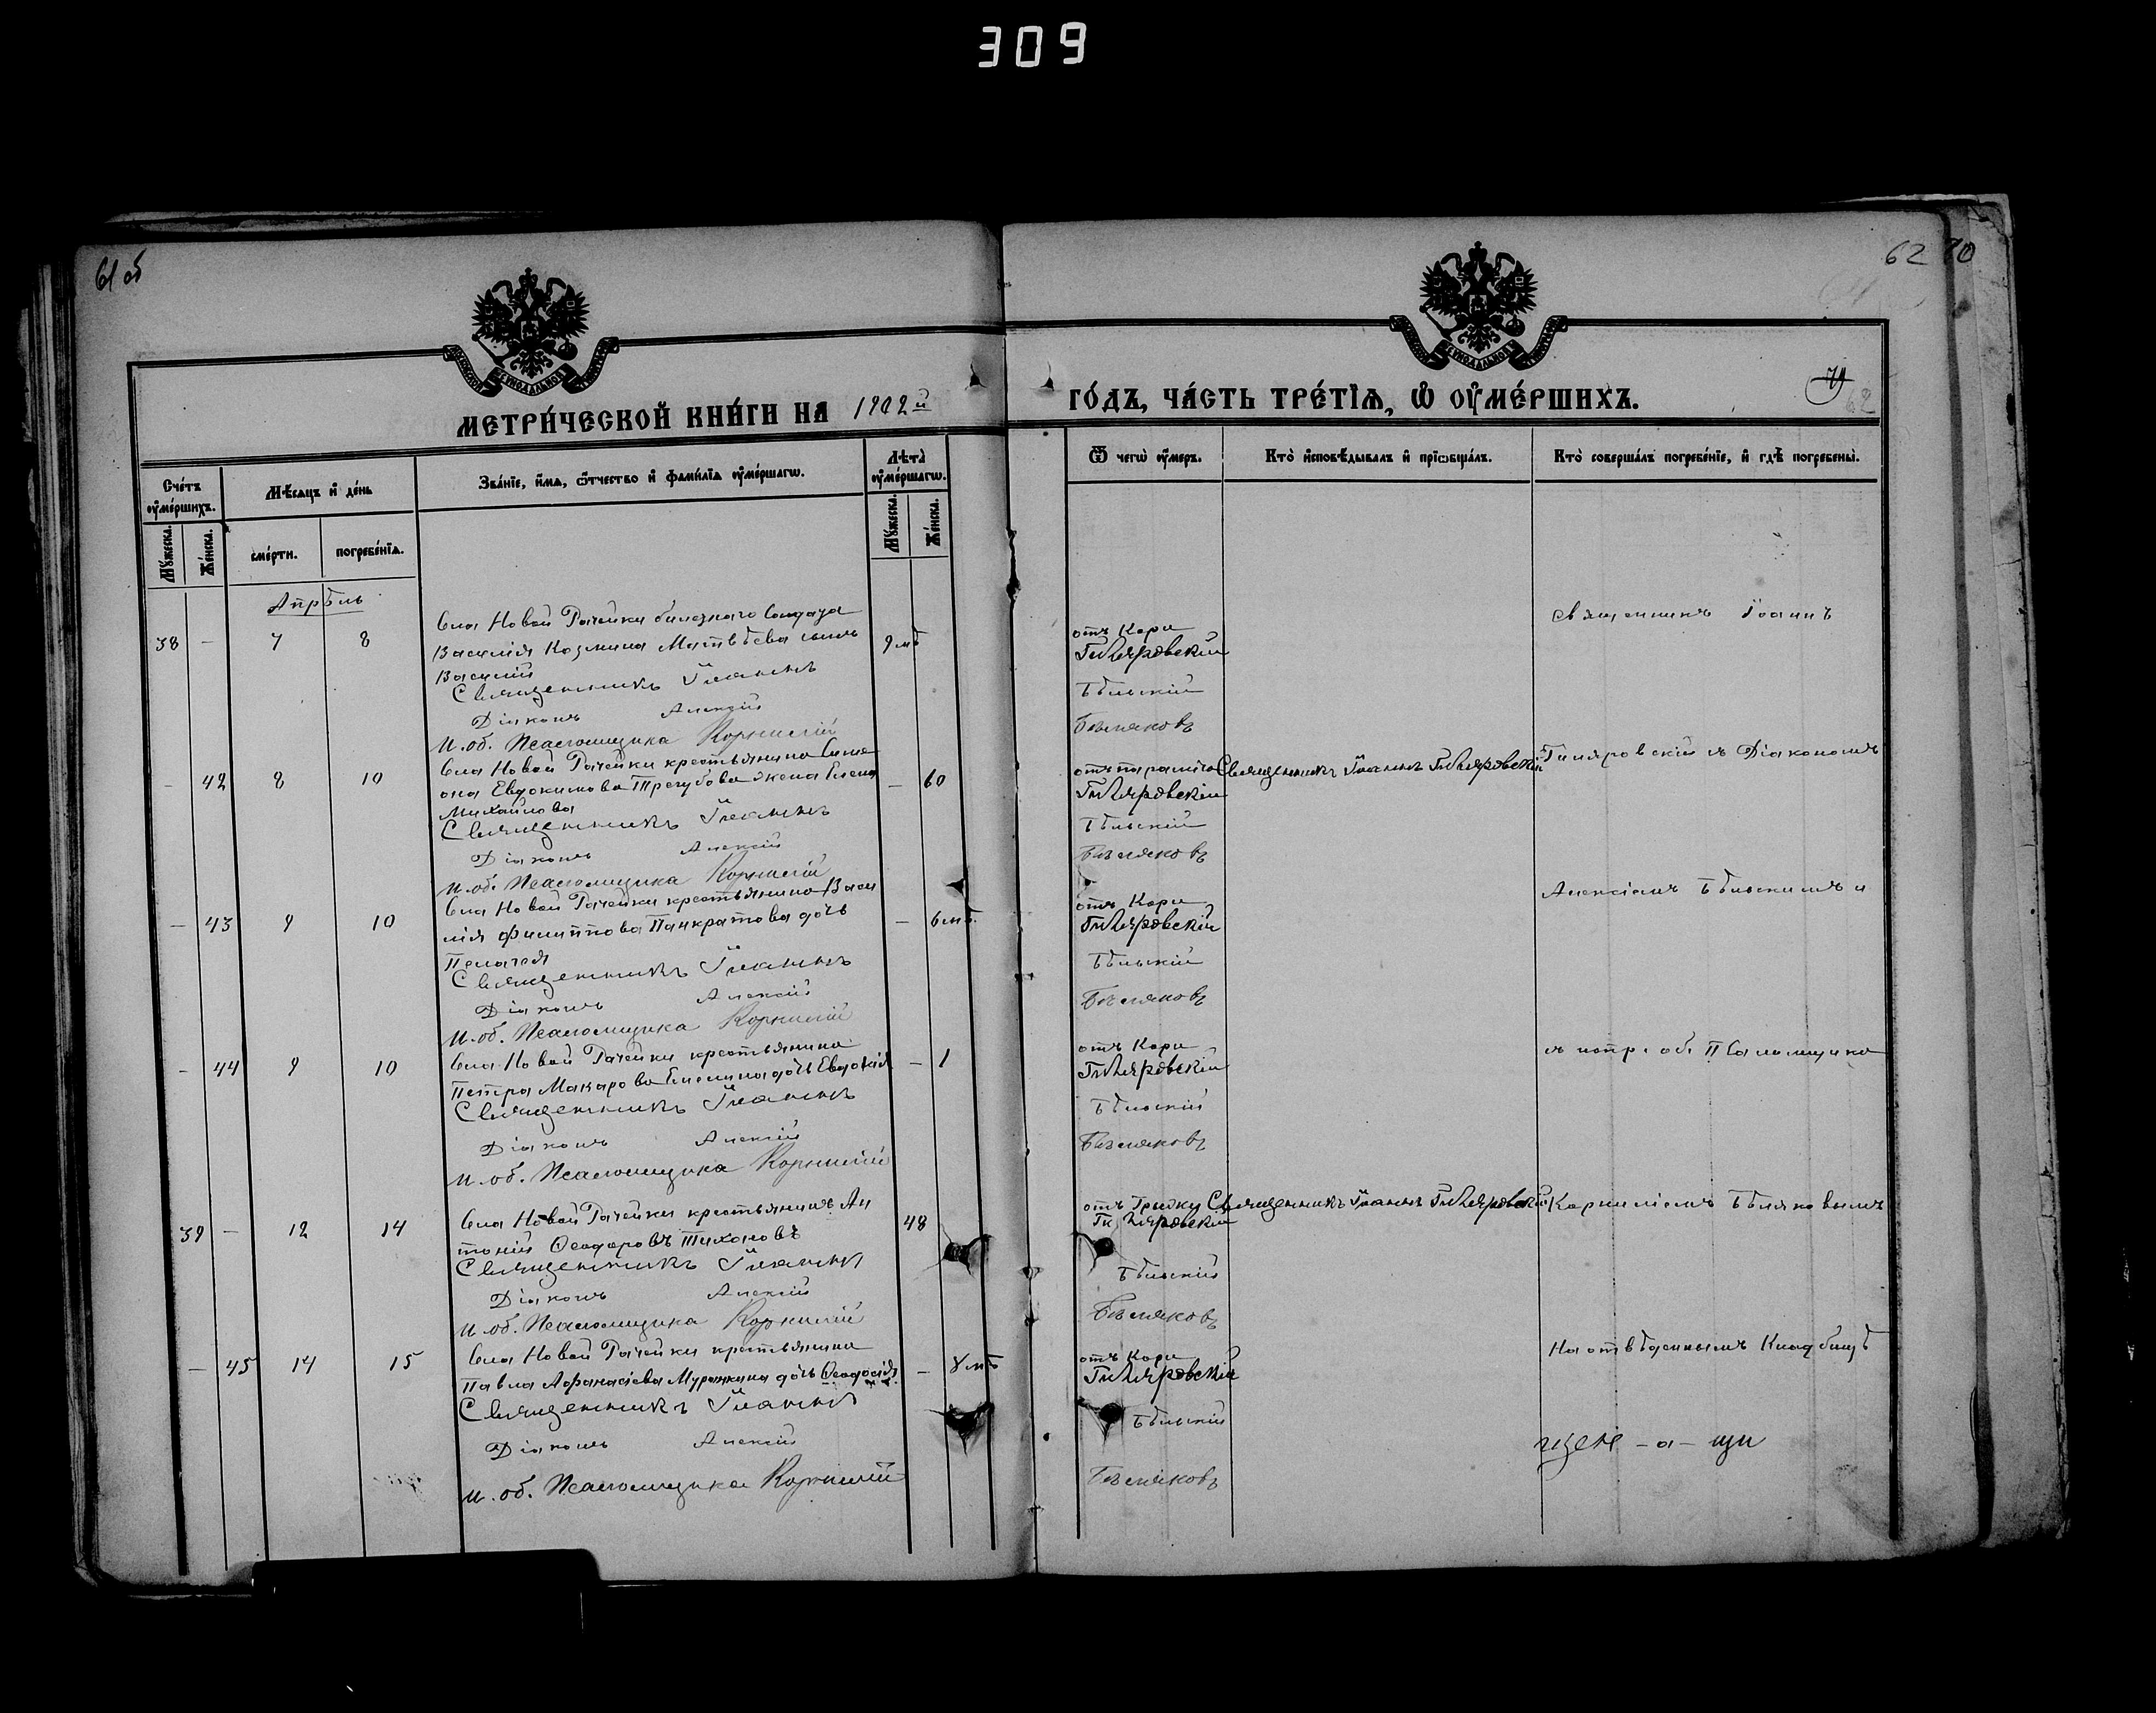 309
61 об
62 70
МЕТРИ́ЧЕСКОЙ КНИ́ГИ НА 1902й
ГО́ДЪ, ЧА́СТЬ ТРЕ́ТЇѦ, Ѡ ОУ҆МЕ́РШИХЪ.
79
62
Сче́тъ оу҆ме́ршихъ.
Мꙋ́жеска.
Же́нска.
Мѣ́сѧцъ и҆ де́нь
сме́рти.
погребе́нїѧ.
Зва́нїе, и҆́мѧ, ѻ҆́тчество и҆ фами́лїѧ оу҆ме́ршагѡ.
Лѣ́та оу҆ме́ршагѡ.
Мꙋ́жеска.
Же́нска.
Ѿ чегѡ̀ оу҆́меръ.
Кто̀ и҆сповѣ́дывалъ и҆ прїѡбща́лъ.
Кто̀ соверша́лъ погребе́нїе, и҆ гдѣ̀ погребены̀.
Апрѣль
38 — 7 8
Села Новой Рачейки билетнаго Солдата
Василія Козмина Матвѣева сынъ
Василій
9 мѣ
отъ Кори
Священникъ Іоаннъ Гиляровскій
Діаконъ Алексій Бѣльскій
И. об. Псаломщика Корнилій Бѣляковъ
— 42 8 10
Села Новой Рачейки крестьянина Симе
она Евдокимова Трегубова жена Елена
Михайлова
— 60
Священникъ Іоаннъ Гиляровскій
Священникъ Іоаннъ Гиляровскій
Діаконъ Алексій Бѣльскій
И. об. Псаломщика Корнилій Бѣляковъ
— 43 9 10
Села Новой Рачейки крестьянина Васи
лія Филиппова Панкратова дочь
Пелагея
— 6 мѣ.
отъ Кори
Священникъ Іоаннъ Гиляровскій
Діаконъ Алексій Бѣльскій
И. об. Псаломщика Корнилій Бѣляковъ
— 44 9 10
Села Новой Рачейки крестьянина
Петра Макарова Емелина дочь Евдокія
— 1
отъ Кори
Священникъ Іоаннъ Гиляровскій
Діаконъ Алексій Бѣльскій
И. об. Псаломщика Корнилій Бѣляковъ
39 — 12 14
Села Новой Рачейки крестьянинъ Ан
тоній Ѳеодоровъ Тихоновъ
48
отъ Грыжи
Священникъ Іоаннъ Гиляровскій
Священникъ Іоаннъ Гиляровскій
Діаконъ Алексій Бѣльскій
И. об. Псаломщика Корнилій Бѣляковъ
— 45 14 15
Села Новой Рачейки крестьянина
Павла Афанасіева Муранкина дочь Ѳеодосія
— 8 мѣ
отъ Кори
Священникъ Іоаннъ Гиляровскій
Діаконъ Алексій Бѣльскій
И. об. Псаломщика Корнилій Бѣляковъ
Священникъ Іоаннъ
Гиляровскій съ Діакономъ
Алексіемъ Бѣльскимъ и
съ испр. об. Псаломщика
Корниліемъ Бѣляковымъ
На отвѣденнымъ Кладбищѣ